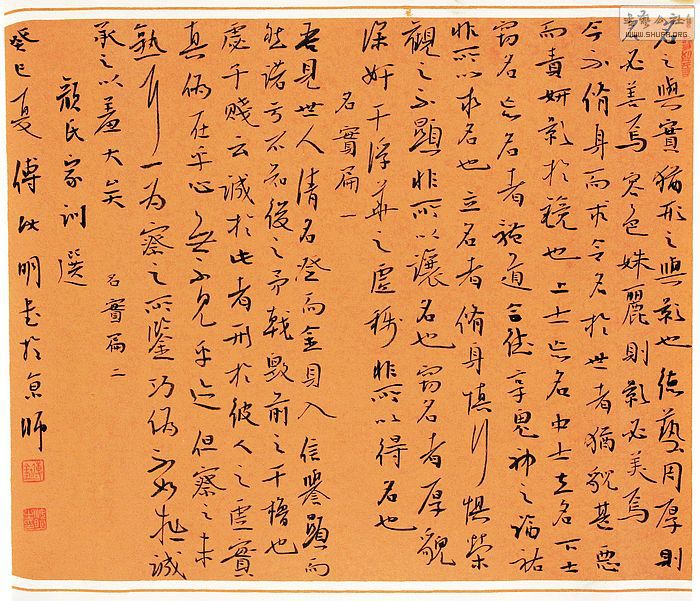 名之與實猶形之與影也德藝周厚則
名必善焉容色姝麗則影必美焉
今不脩身而求令名於世者猶貌甚惡
而責妍影於鏡也上士忘名中士立名下士
竊名忘名者體道合德享鬼神之福祐
非所以求名也立名者脩身慎行懼榮
觀之不顯非所以讓名也竊名者厚貌
深奸干浮華之虛稱非所以得名也
名實篇一
吾見世人清名登而金貝入信譽顯而
然諾亏不知後之矛戟毀前之干櫓也
虙子賤云誠於此者刑於彼人之虛實
真偽在乎心無不見乎迹但察之未
熟一為察之所鑒巧偽不如拙誠
承之以羞大矣
名實篇二
顏氏家訓選
癸巳夏傅明書於京師
WWW.SHUFA.ORG